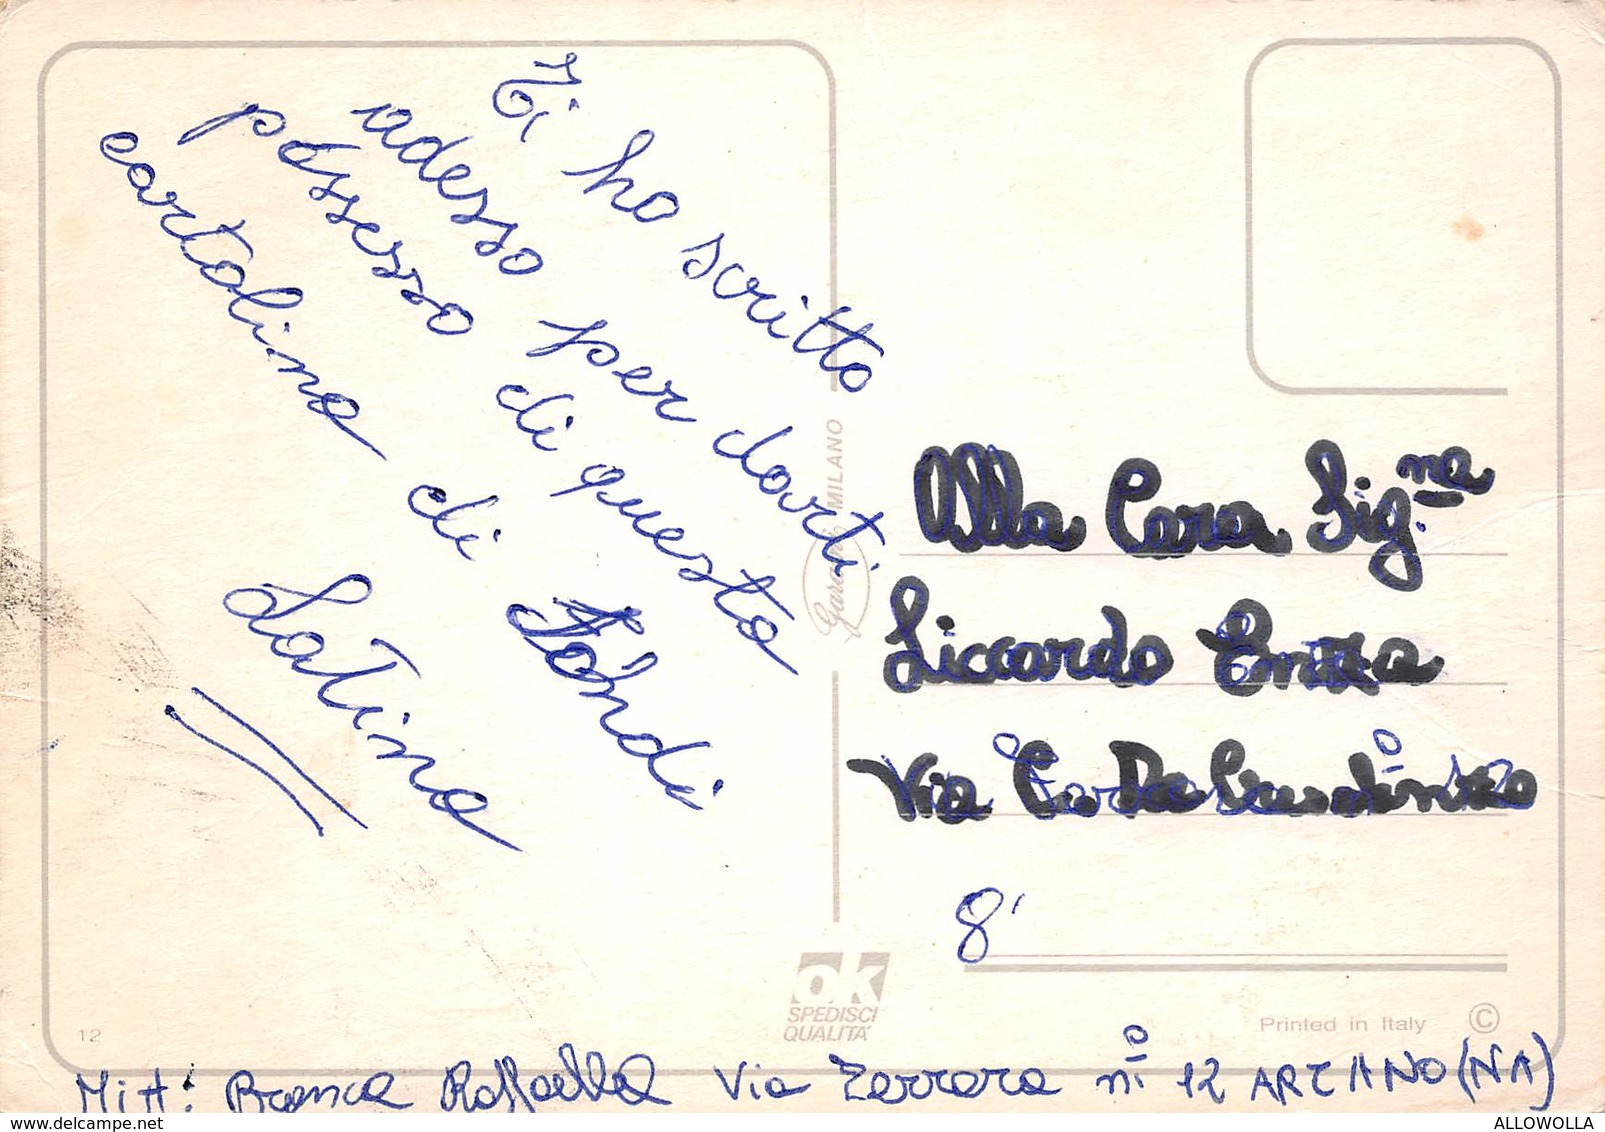 Ti ho scritto
adesso per darti
possesso di questa
cartolina di Fondi
Latina
Garami MILANO
Alla Cara Sig.na
Liccardo Enza
Via
8'
OK
SPEDISCI
QUALITA'
12
Printed in Italy ©
Mitt: Branca Raffaella Via Ferrara n° 12 ARZANO (NA)
www.delcampe.net
ALLOWOLLA